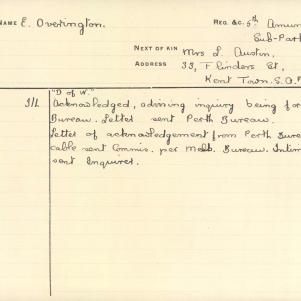 NAME E. Overington. REG. &C. 5th Ammun
Sub-Park
NEXT OF KIN Mrs L. Austin.
ADDRESS 33, Flinders St,
Kent Town. S.A.
"D of W."
3/1. Acknowledged, advising inquiry being for
Bureau. Letter sent Perth Bureau.
Letter of acknowledgement from Perth Bure
cable sent Commis. per Melb. Bureau. Intim
sent Inquirer.